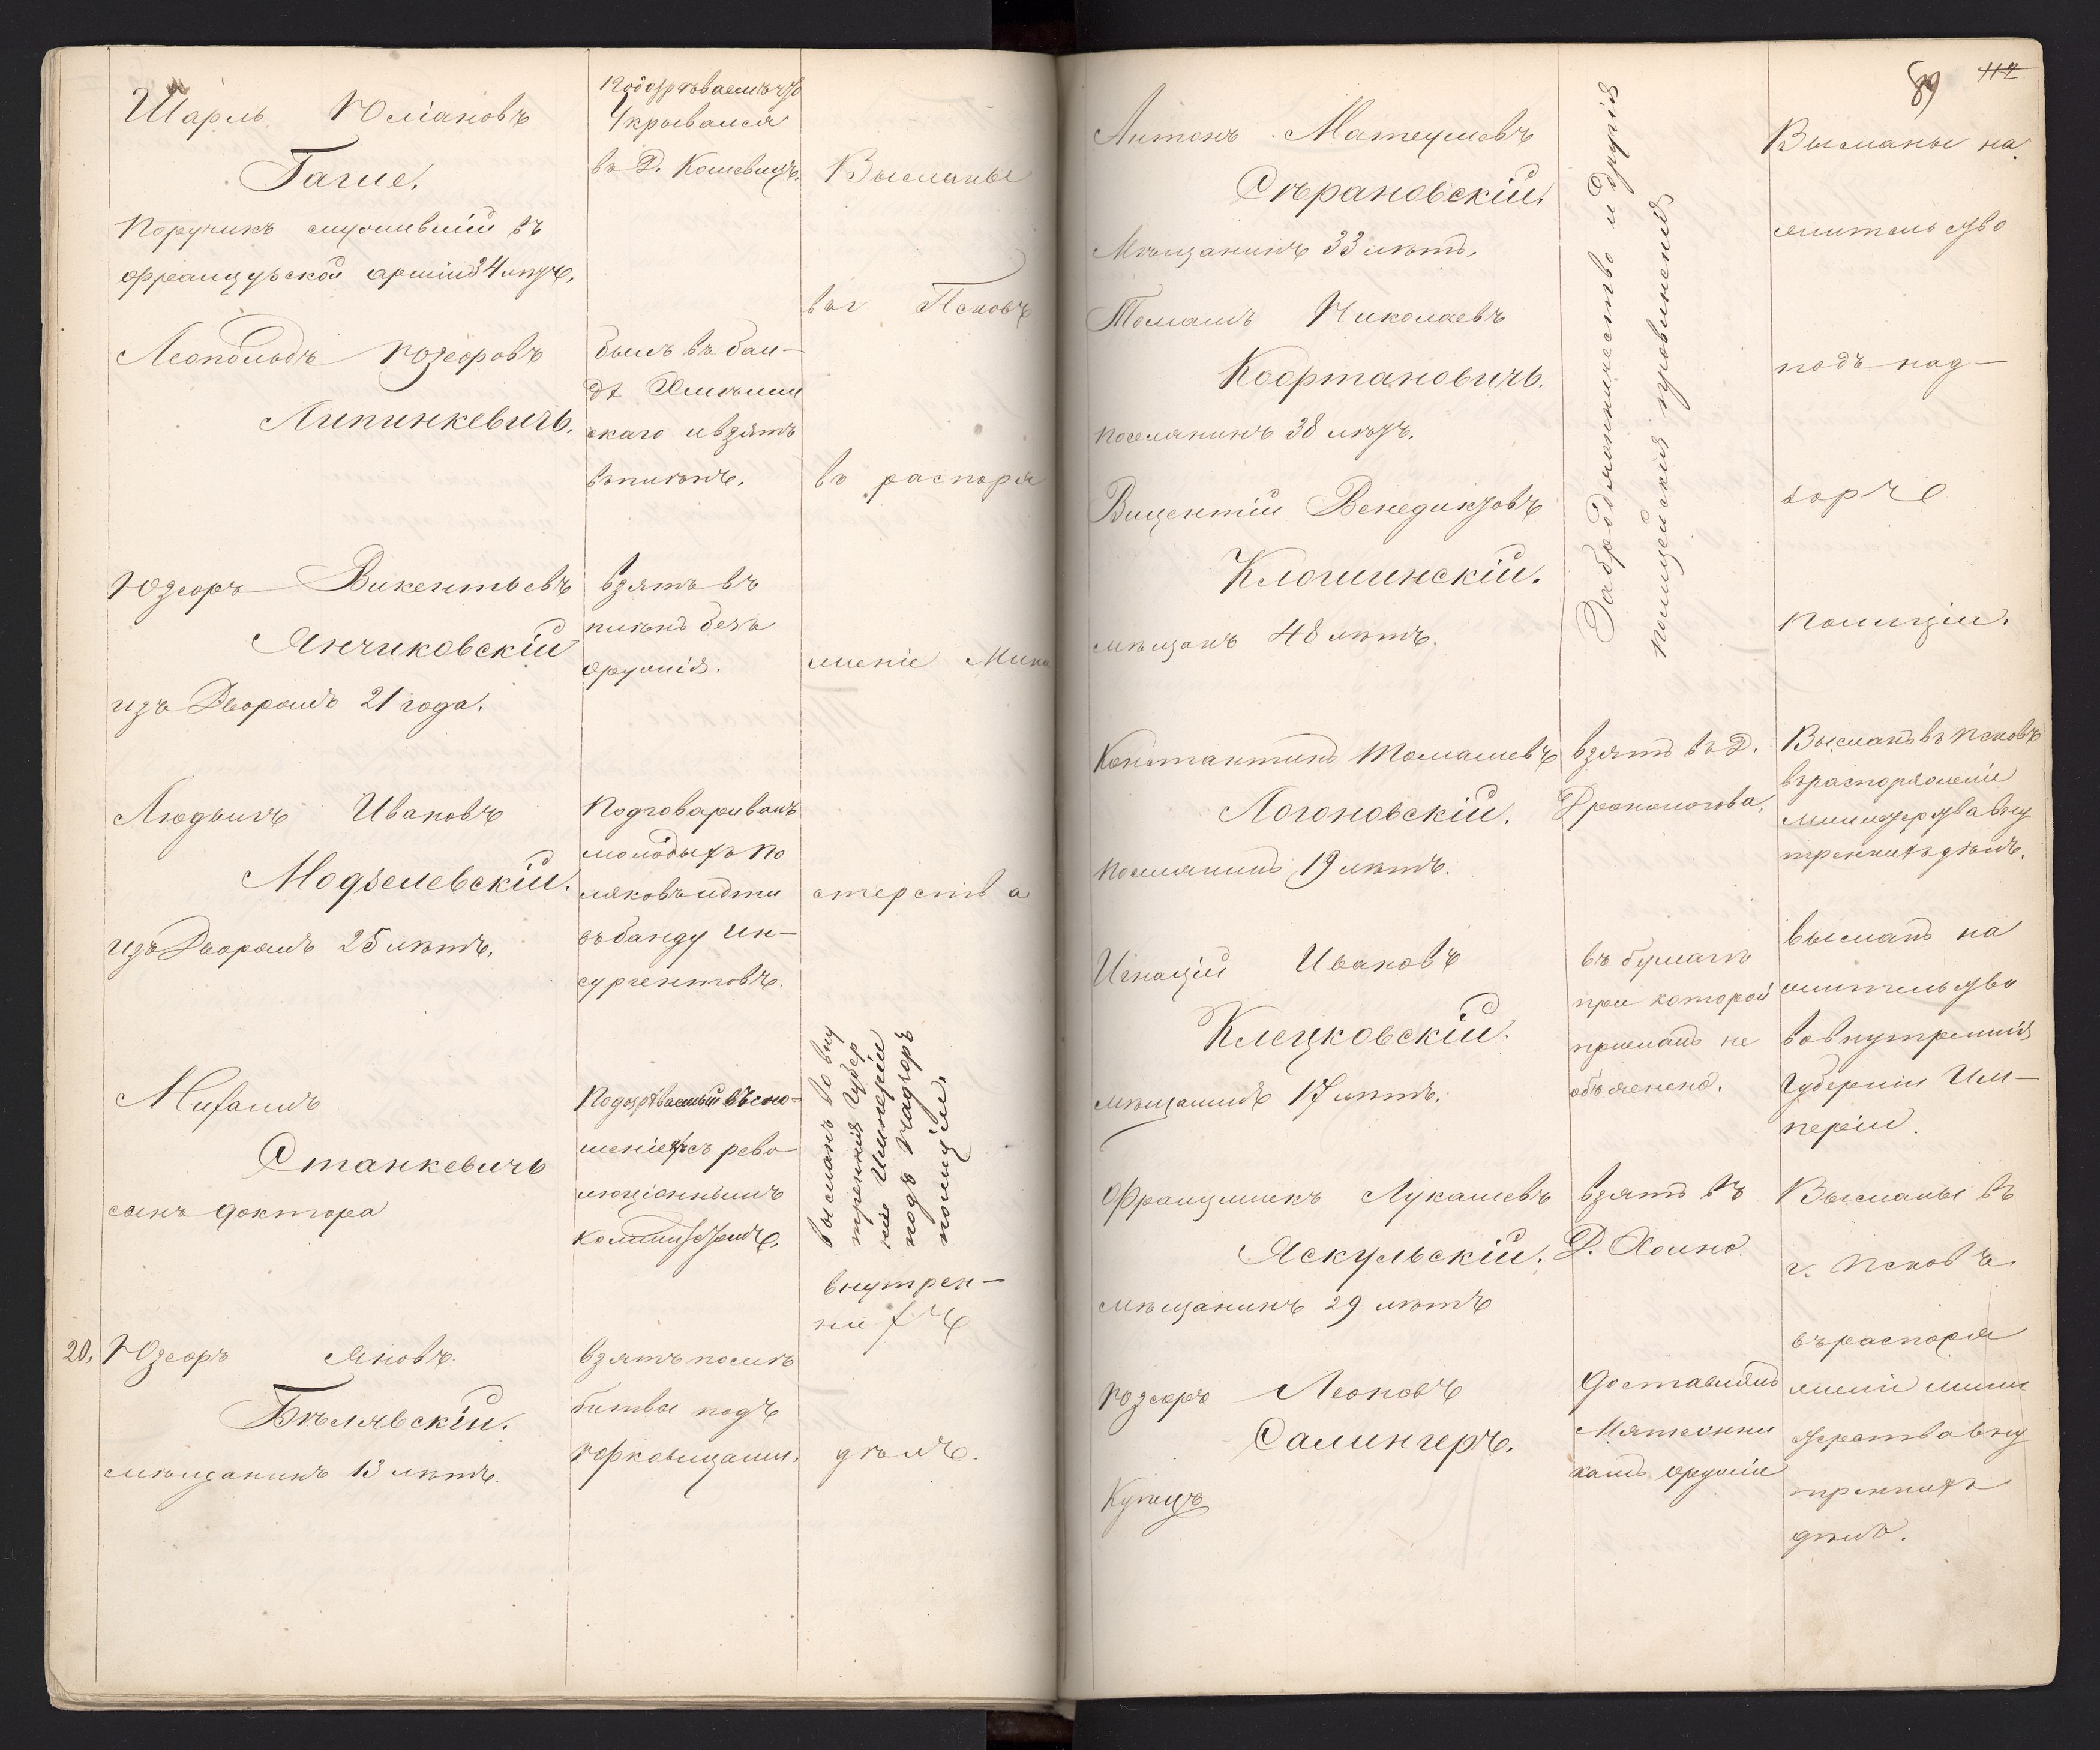 Шарль Юліановъ
Гагие.
Поручикъ служившій въ
французской арміи 34 лѣтъ.
Подозрѣваемъ что
укрывался
въ Д. Кошевицъ.
Высланы
въ г Псковъ
въ распоря
женіе Мини
стерства
внутрен-
нихъ
дѣлъ.
Леопольдъ Юзефовъ
Липинкевичъ.
былъ въ бан-
дѣ
скаго и взятъ
въ плѣнъ.
Юзефъ Викентьевъ
Янчиковскій
изъ Дворянъ 21 года.
взятъ въ
плѣнъ безъ
оружія.
Людвигъ Ивановъ
Модзелевскій.
изъ Дворянъ 25 лѣтъ.
Подговаривалъ
молодыхъ по
ляковъ идти
въ банду ин-
сургентовъ.
Михаилъ
Станкевичъ
сынъ доктора
Подозрѣваемый въ сно-
шеніяхъ съ рево
люціоннымъ
комитетомъ.
высланъ во вну
треннія Губер
ніи Имперіи
подъ надзоръ
полиціи.
20. Юзефъ Яновъ.
Бѣлявскій.
мѣщанинъ 13 лѣтъ.
взятъ послѣ
битвы подъ
89 112
Антонъ Матеушевъ
Сѣрановскій.
Мѣщанинъ 33 лѣтъ.
Томашъ Николаевъ
Кофтановичъ.
поселянинъ 38 лѣтъ.
Вицентій Венедиктовъ
Клошинскій.
мѣщанъ 48 лѣтъ.
За бродяжничество и другія
полицейскія провиненія
Высланы на
жительство
подъ над-
зоръ
полиціи.
Константинъ Томашевъ
Логоновскій.
поселянинъ 19 лѣтъ.
взятъ въ Д.
Высланъ въ Псковъ
въ распоряженіе
министерства вну
треннихъ дѣлъ.
Игнацій Ивановъ
Клецковскій.
мѣщанинъ 17 лѣтъ.
въ бумагѣ
при которой
присланъ не
объяснено.
высланъ на
жительство
во внутреннія
Губерніи Им-
періи.
Францишекъ Лукашевъ
Яскульскій.
мѣщанинъ 29 лѣтъ
взятъ въ
Д.
Высланы въ
г. Псковъ
въ распоря
женіе мини
стерства вну
треннихъ
дѣлъ.
Юзефъ Леоновъ
Салингеръ.
Купецъ
доставлялъ
Мятежни
камъ оружіе